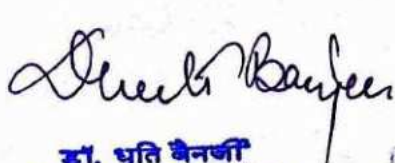 Dhriti Banerjee
डॉ. धृति बैनर्जी